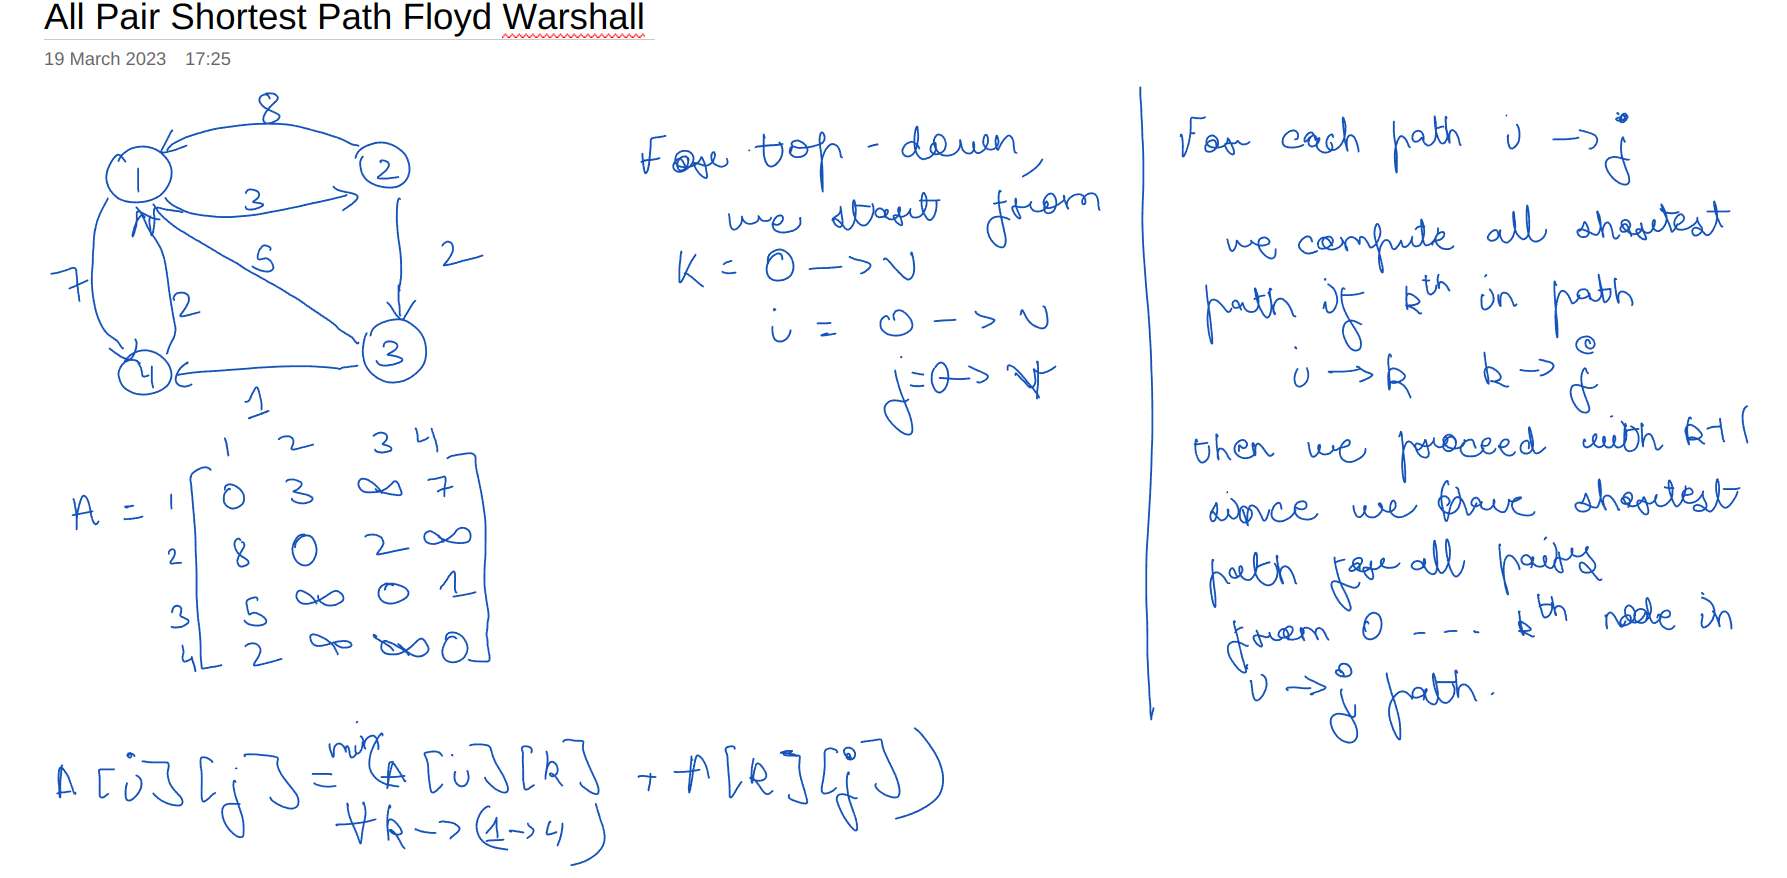 All Pair Shortest Path Floyd Warshall
19 March 2023 17:25
8
1
2
3
5
2
7
2
3
4
1
1 2 3 4
A = 1 0 3 ∞ 7
2 8 0 2 ∞
3 5 ∞ 0 1
4 2 ∞ ∞ 0
A[i][j] = min(A[i][k] + A[k][j])
∀k -> (1->4)
For top-down,
we start from
K = 0 -> V
i = 0 -> V
j=0-> V
For each path i -> j
we compute all shortest
path if kth in path
i -> k k -> j
then we proceed with k+1
since we have shortest
path for all pairs
from 0 --- kth node in
i -> j path.